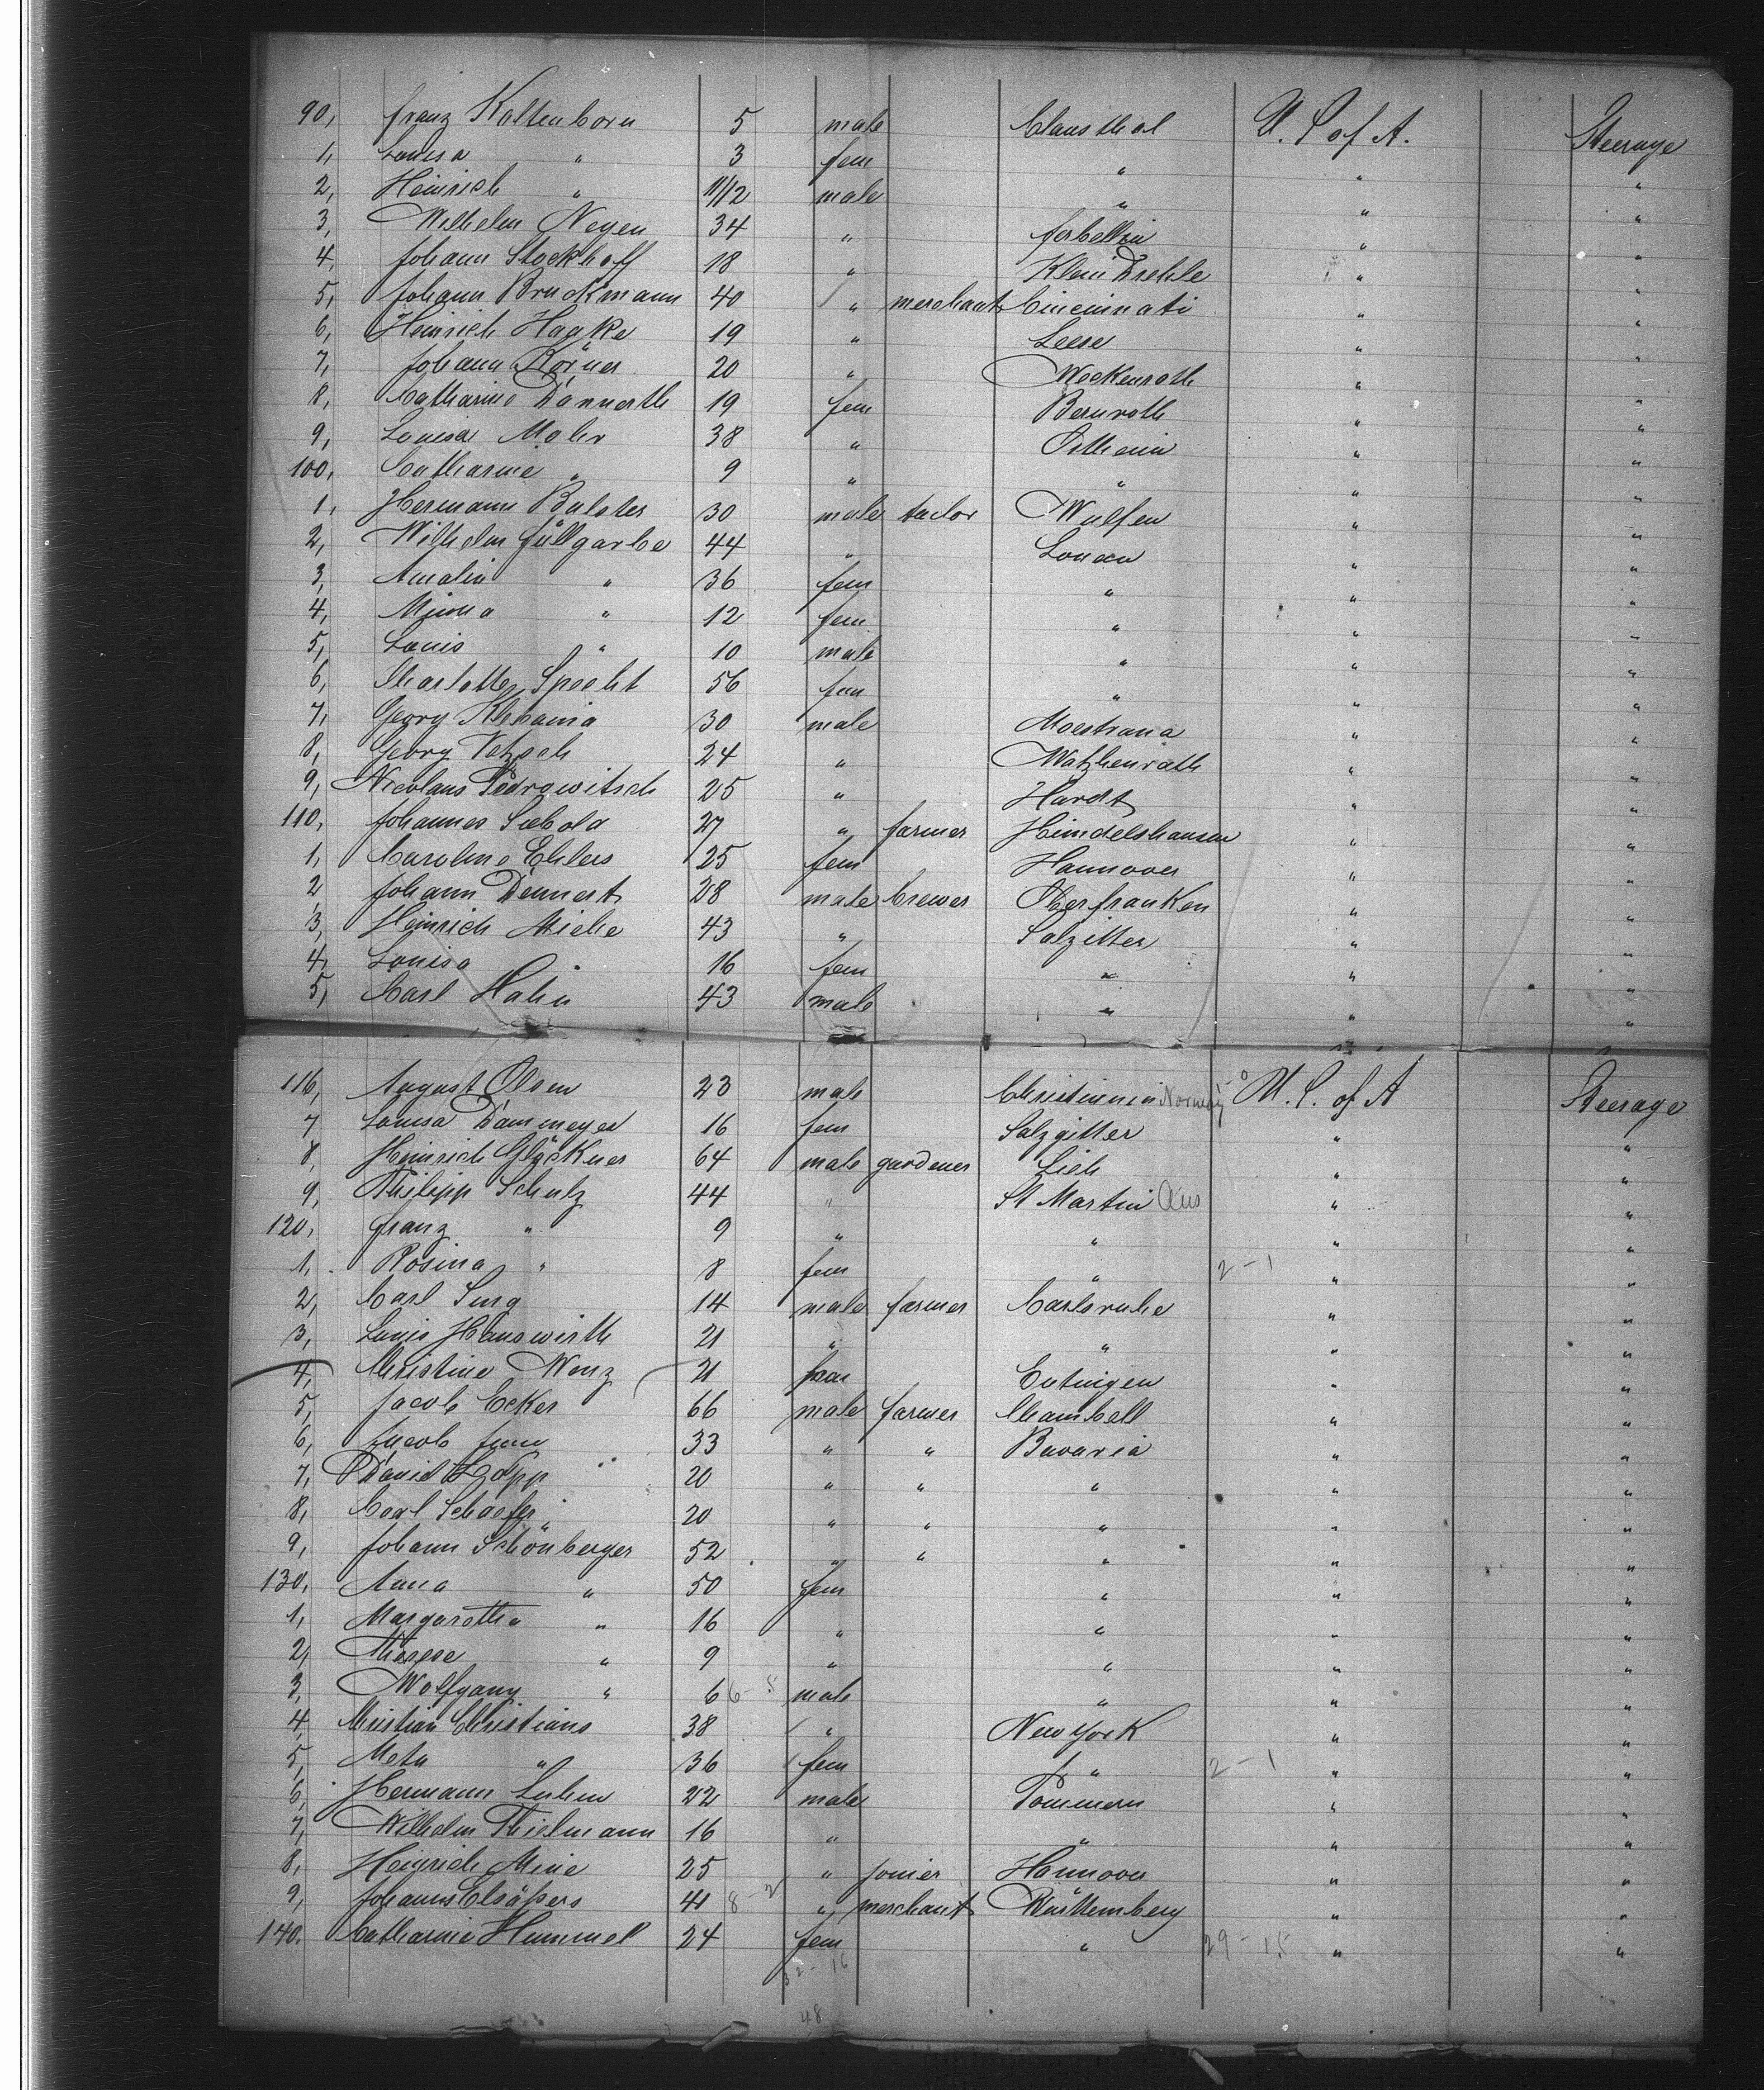 90, Franz Kaltenborn 5 male Clausthal U. S of A. Steerage
1, Louisa " 3 fem " " "
2, Heinrich " 11/12 male " " "
3, Wilhelm Neyen 34 " Ferbellin " "
4, Johann Stockhoff 18 " Klein Drehle " "
5, Johann Bruckmann 40 " merchant Cincinnati " "
6, Heinrich Haake 19 " Leese " "
7, Johann Körner 20 " Weckenroth " "
8, Catharine Dannerth 19 fem Bernroth " "
9, Louisa Mohr 38 " Ostheim " "
100, Catharine " 9 " " " "
1, Hermann Bulster 30 male tailor Wulfen " "
2, Wilhelm Füllgarbe 44 " " "
3, Amalia " 36 fem " " "
4, Minna " 12 fem " " "
5, Louis " 10 male " " "
6, Charlotte Specht 56 fem " " "
7, Georg Klebania 30 male Moestrana " "
8, Georg 24 " Watzhenrath " "
9, Nicolaus 25 " Hardt " "
110, Johannes Siebold 27 " farmer Heimdelshausen " "
1, Caroline Ehlers 25 fem Hannover " "
2 Johann Dennert 28 male brewer Oberfranken " "
3, Heinrich Miehe 43 " Salzitter " "
4, Louisa 16 fem " " "
5, Carl Hahn 43 male " " "
116, August Olsen 23 male Christiania Norway U. S. of A Steerage
7 Louisa Dammeyer 16 fem Salzgitter " "
8, Heinrich Glöckner 64 male gardener Lich " "
9, Philipp Schulz 44 " St Martin Aus " "
120, Franz " 9 " " " "
1, Rosina " 8 fem " 2-1 " "
2, Carl Surg 14 male farmer Carlsruhe " "
3, Louis Hauswirth 21 " " " "
4, Christine Wenz 21 fem Eutingen " "
5, Jacob Ecker 66 male farmer Chambell " "
6, Jacob 33 " " Bavaria " "
7, David 20 " " " " "
8, Carl Schaefer 20 " " " " "
9, Johann Schönberger 52 " " " " "
130, Anna " 50 fem " " "
1, Margaretha " 16 " " " "
2, Therese " 9 " " " "
3, Wolfgang " 6 6- male " " "
4, Christian Christians 38 " New York " "
5, Meta " 36 fem " 2-1 " "
6, Hermann 22 male Pommern " "
7, Wilhelm Thielmann 16 " " " "
8, Heinrich Meine 25 " joiner Hannover " "
9, Johann 41 8-2 " merchant Württemberg " "
140. Catharina Hummel 24 fem " 29-15 " "
32-16
48